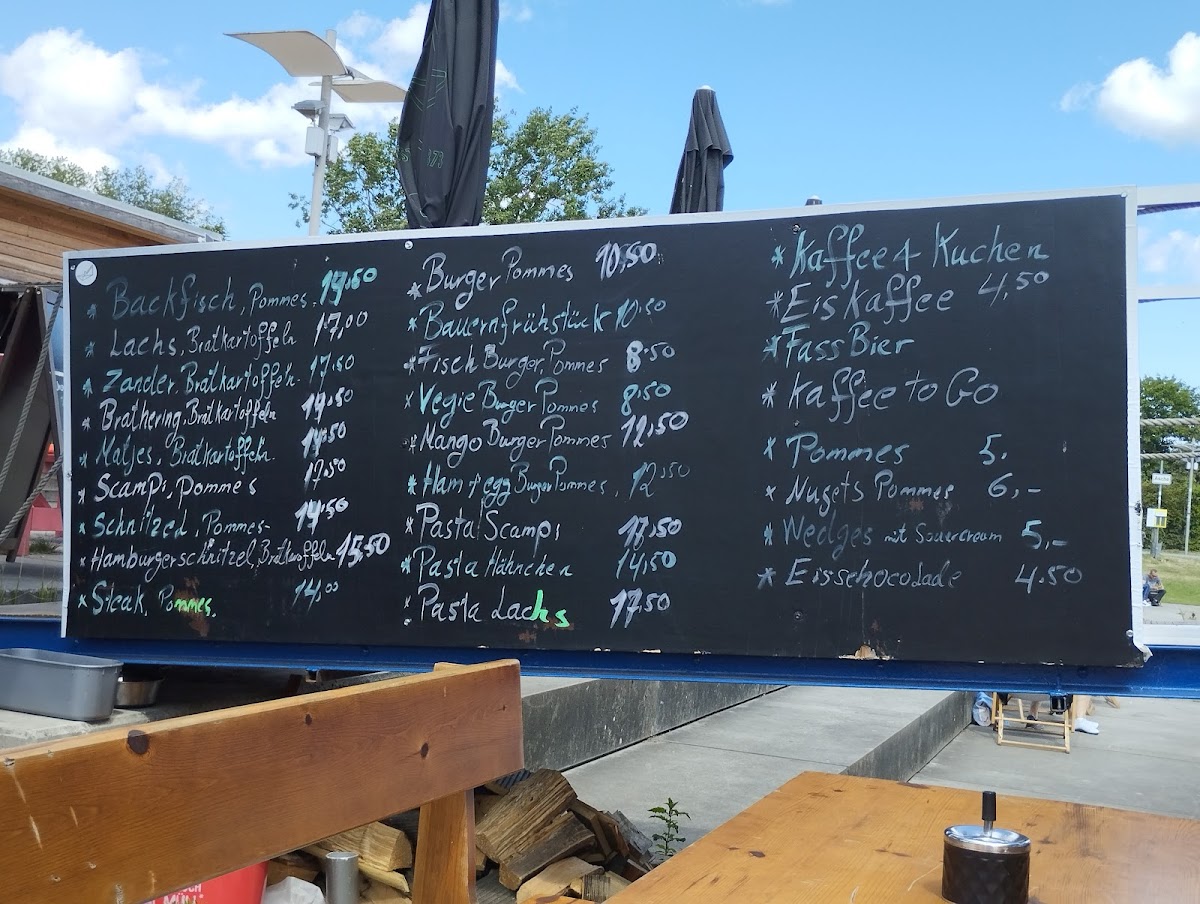 * Backfisch, Pommes. 19,50
* Lachs, Bratkartoffeln 17,00
* Zander, Bratkartoffeln. 17,50
* Brathering, Bratkartoffeln 14,50
* Matjes, Bratkartoffeln. 14,50
* Scampi, Pommes 17,50
* Schnitzel, Pommes- 14,50
* Hamburgerschnitzel, Bratkartoffeln 15,50
* Steak, Pommes, 14,00
* Burger Pommes 10,50
* Bauernfrühstück 10,50
* Fisch Burger, Pommes 8,50
* Vegie Burger Pommes 8,50
* Mango Burger Pommes 12,50
* Ham + egg Burger Pommes, 12,50
* Pasta Scampi 17,50
* Pasta Hähnchen 14,50
* Pasta Lachs 17,50
* Kaffee + Kuchen
* Eiskaffee 4,50
* Fass Bier
* Kaffee to Go
* Pommes 5.
* Nugets Pommes 6,-
* Wedges mit Sourcream 5,-
* Eisschocolade 4.50